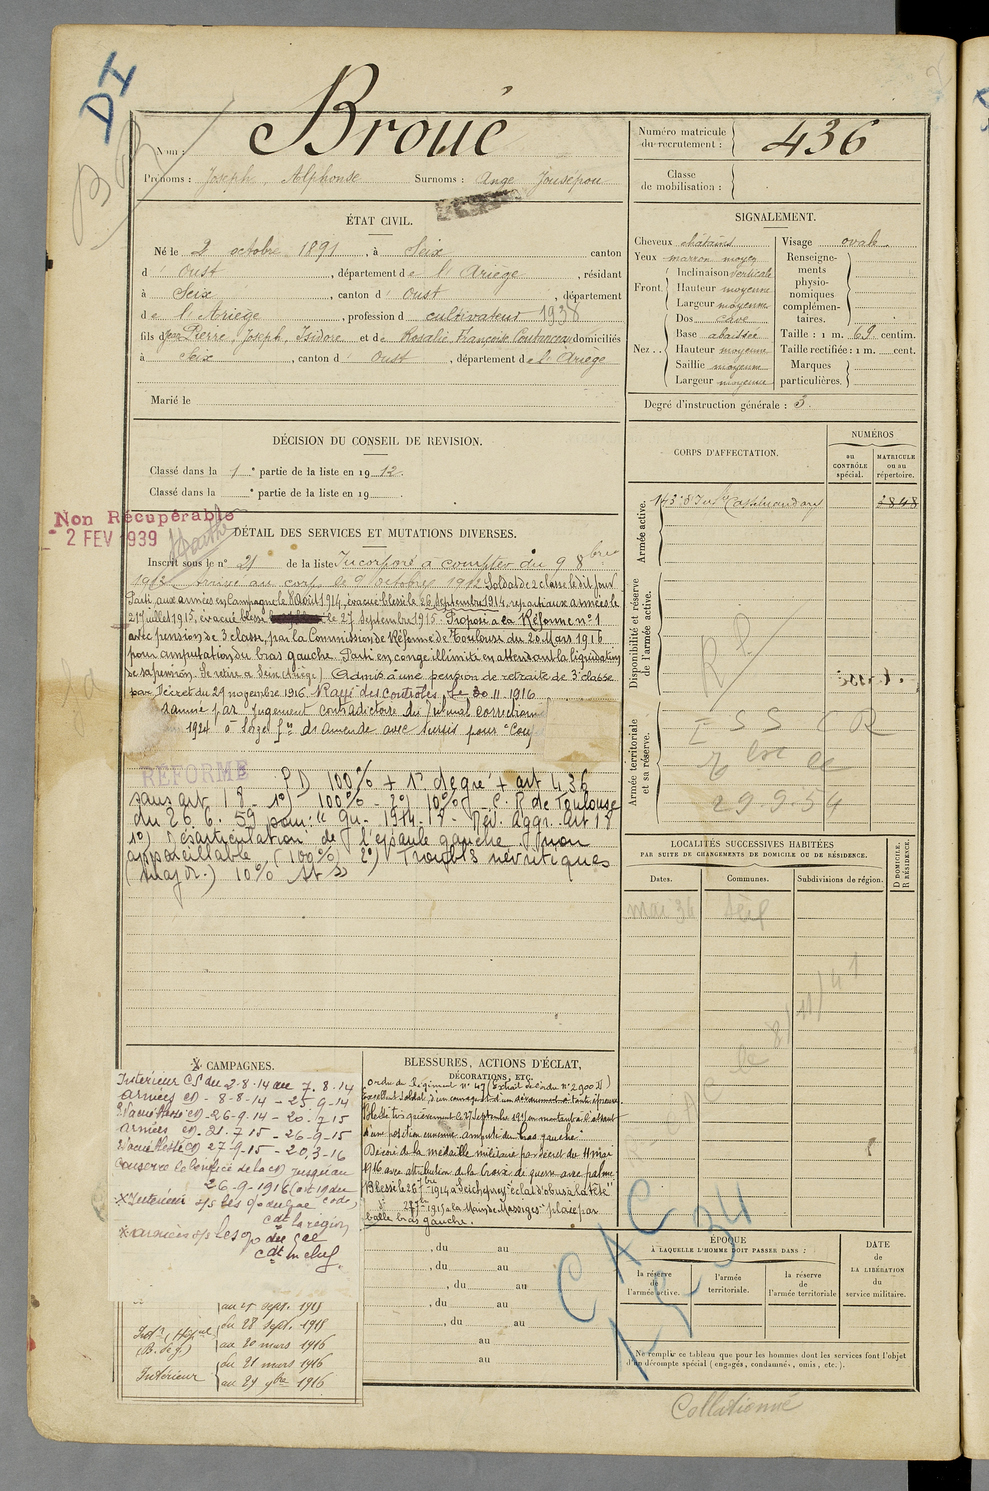 DI
Nom : Broué
Prénoms : Joseph, Alphonse Surnoms : Ange Jousépou
Numéro matricule
du recrutement : 436
Classe
de mobilisation :
ÉTAT CIVIL.
Né le 2 octobre 1891, à Seix canton
d' Oust, département de l'Ariège, résidant
à Seix, canton d' Oust, département
de l'Ariège, profession d cultivateur 1938
fils de Jean Pierre, Joseph, Isidore et de Rosalie Françoise domiciliés
à Seix, canton d' Oust, département de l'Ariège
Marié le
SIGNALEMENT.
Cheveux châtains
Yeux marron moyen
Front. Inclinaison verticale
Hauteur moyenne
Largeur moyenne
Nez.. Dos cave
Base abaissée
Hauteur moyenne
Saillie moyenne
Largeur moyenne
Visage ovale
Renseigne-
ments
physio-
nomiques
complémen-
taires.
Taille : 1 m. 69. centim.
Taille rectifiée : 1 m. cent.
Marques
particulières.
Degré d'instruction générale : 3.
DÉCISION DU CONSEIL DE REVISION.
Classé dans la 1e partie de la liste en 1912.
Classé dans la e partie de la liste en 19
CORPS D'AFFECTATION.
NUMÉROS
au
CONTRÔLE
spécial.
MATRICULE
ou au
répertoire.
Armée active.
143e d'Inf Castelnaudary
2848
Disponibilité et réserve
de l'armée active.
Armée territoriale
et sa réserve.
29.9.59
Non Récupérable
2 FEV 1939
DÉTAIL DES SERVICES ET MUTATIONS DIVERSES.
Inscrit sous le n° 21 de la liste Incorporé à compter du 9 8bre
1912. Arrivé au corps le 9 octobre 1912 Soldat de 2 classe le dit jour
Parti aux armées en Campagne le 8 août 1914, évacué blessé le 26 Septembre 1914, reparti aux armées le
21 juillet 1915, évacué blessé le 27 Septembre 1915. Proposé à la Réforme n° 1
avec pension de 3 classe, par la Commission de Réforme de Toulouse du 20 Mars 1916
pour amputation du bras gauche. Parti en congé illimité en attendant la liquidation
de sa pension. Se retire à Seix (Ariège) Admis à une pension de retraite de 3e classe
par Décret du 29 novembre 1916. Rayé des contrôles le 30.11.1916
damné par jugement contradictoire du tribunal correction
1924 à 50 f d'amende avec sursis pour "Coup
RÉFORMÉ
PD 100% + 1er degré + art 436
sans art 18 - 1°) 100% - 2°) 10% - C. R de Toulouse
du 26.6.59 pour: " Gu. 1914-18 - Rév. Aggr. Art 18
1°) Désarticulation de l'épaule gauche. non
appareillable (100%) 2°) Troubles névritiques
(major.) 10%
LOCALITÉS SUCCESSIVES HABITÉES
PAR SUITE DE CHANGEMENTS DE DOMICILE OU DE RÉSIDENCE.
Dates. Communes. Subdivisions de région.
D DOMICILE.
R RÉSIDENCE.
mai 34 Seix
CAMPAGNES.
Intérieur CS du 2-8-14 au 7.8.14
armées CD - 8-8-14 - 25-9-14
Evacué blessé CD - 26-9-14 - 20-7-15
armées CD - 21-7-15 - 26-9-15
Evacué blessé CD 27-9-15 - 20-3-16
Conserve le bénéfice de la CD jusqu'au
26-9-1916 (art 19 du
code)
X Intérieur s/s les o du Gal
cdt la région
X armées s/s les o du Gal
cdt en chef.
au 25 sept. 1915
Int (Hôpital du 28 Sept. 1915
(B. de g.) au 20 mars 1916
Intérieur du 21 mars 1916
au 29 9bre 1916
BLESSURES, ACTIONS D'ÉCLAT,
DÉCORATIONS, ETC.
Ordre du Régiment n° 47 (Extrait de l'ordre n° 2900 D)
Excellent soldat, d'un courage et d'un dévouement à toute épreuve
Blessé très grièvement le 27 Septembre 1915 en montant à l'assaut
d'une position ennemie. amputé du bras gauche."
Décoré de la médaille militaire par décret du 11 mai
1916 avec attribution de la Croix de guerre avec palme
Blessé le 26 7bre 1914 à "éclat d'obus à la tête"
d° 27 7bre 1915 la Main de Massiges "plaie par
balle bras gauche.
, du au
, du au
, du au
, du au
, du au
au
au
CAC
1-5-34
ÉPOQUE
À LAQUELLE L'HOMME DOIT PASSER DANS :
la réserve
de
l'armée active.
l'armée
territoriale.
la réserve
de
l'armée territoriale
DATE
de
LA LIBÉRATION
du
service militaire.
Ne remplir ce tableau que pour les hommes dont les services font l'objet
d'un décompte spécial (engagés, condamnés, omis, etc.).
Collationné